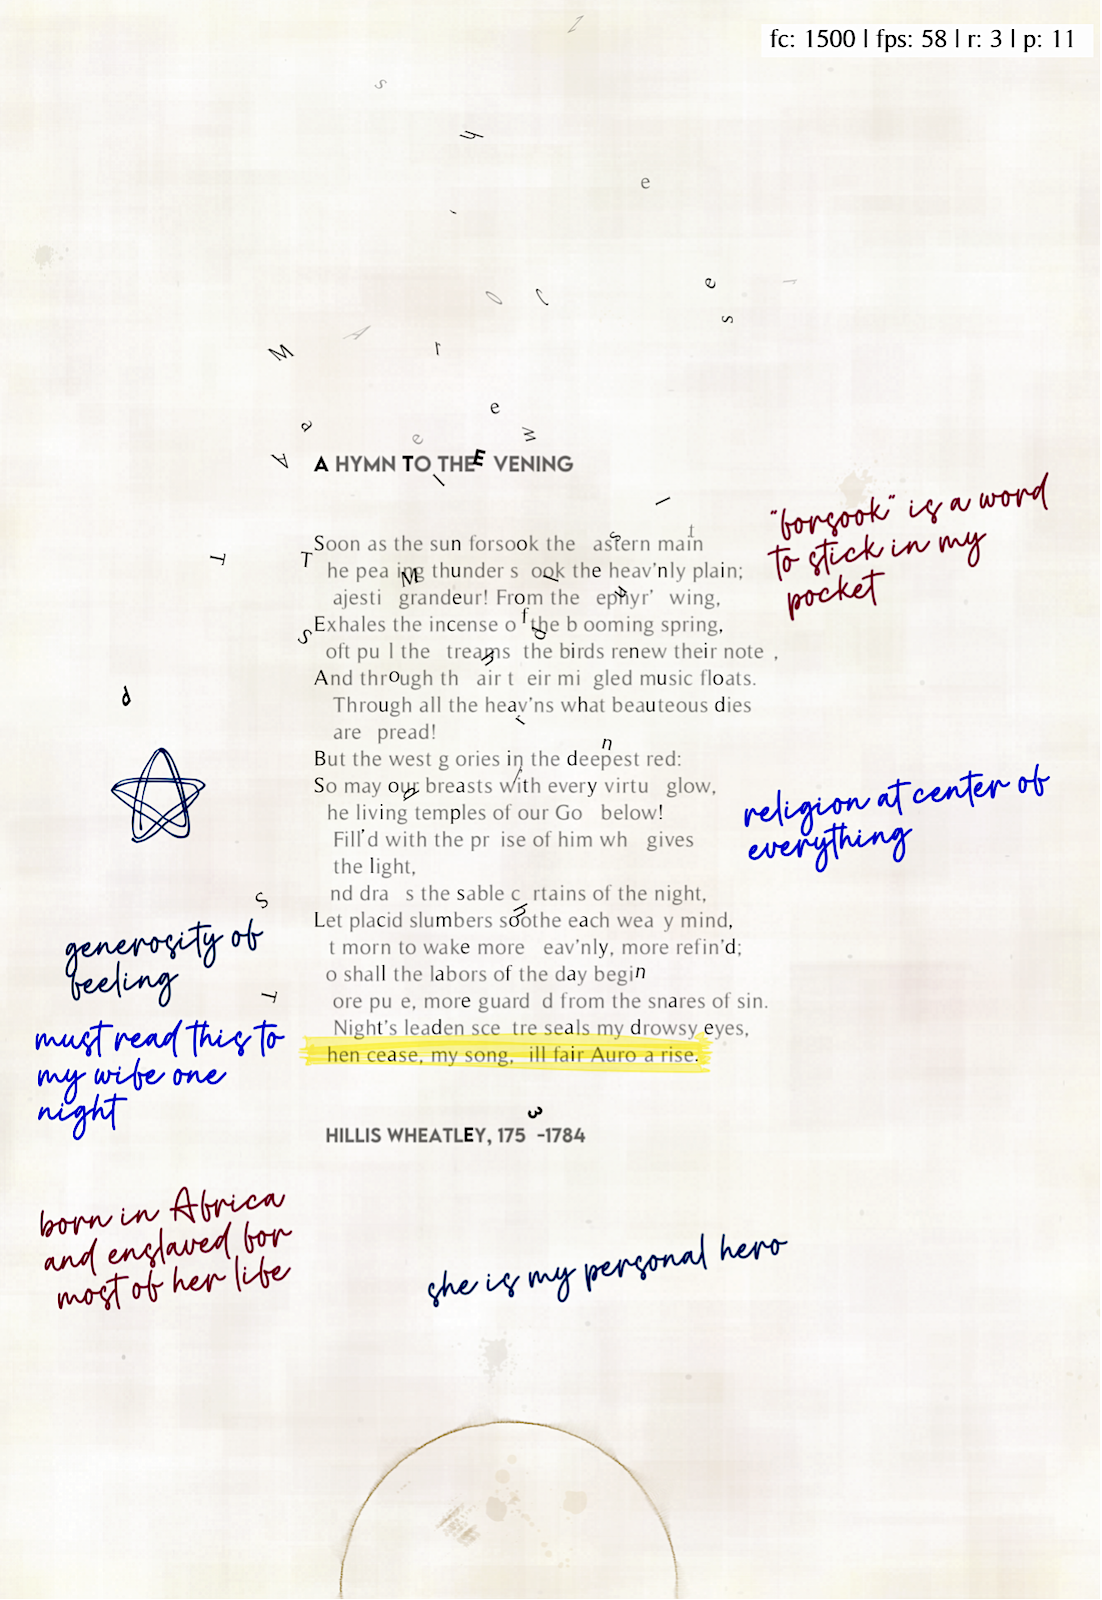 fc: 1500 | fps: 58 | r: 3 | p: 11
A HYMN TO THE E VENING
Soon as the sun forsook the astern main
he pea ing thunder s ook the heav'nly plain;
ajesti grandeur! From the ephyr' wing,
Exhales the incense o f the b ooming spring,
oft pu l the treams the birds renew their note ,
And through th air t eir mi gled music floats.
Through all the heav'ns what beauteous dies
are pread!
But the west g ories in the deepest red:
So may our breasts with every virtu glow,
he living temples of our Go below!
Fill'd with the pr ise of him wh gives
the light,
nd dra s the sable c rtains of the night,
Let placid slumbers soothe each wea y mind,
t morn to wake more eav'nly, more refin'd;
o shall the labors of the day begin
ore pu e, more guard d from the snares of sin.
Night's leaden sce tre seals my drowsy eyes,
hen cease, my song, ill fair Auro a rise.
HILLIS WHEATLEY, 175 3 -1784
"forsook" is a word
to stick in my
pocket
religion at center of
everything
generosity of
feeling
must read this to
my wife one
night
born in Africa
and enslaved for
most of her life
she is my personal hero